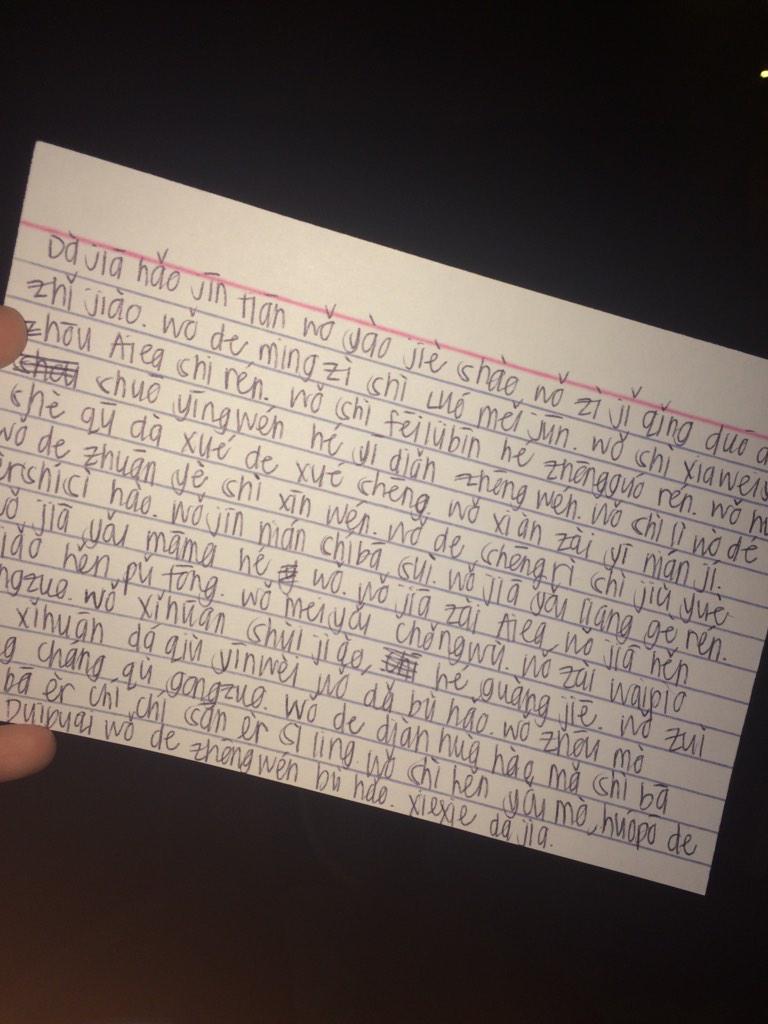 Dà jiā hǎo jīn tiān wǒ yào jiè shào wǒ zì jǐ qǐng duō
zhǐ jiào. wǒ de míng zì chì luó měi jūn. wǒ chì xiawēiy
zhōu Aiea chì rén. wǒ chì fēilǜbīn hé zhōngguó rén. wǒ hu
chuō yīngwén hé yī diǎn zhōng wén. wǒ chì lì wò dé
chè qū dà xué de xué chēng wǒ xiàn zài yī mán jí.
wǒ de zhuān yè chì xīn wén. wǒ de chēngrì chì jiǔ yuè
èrchícì hào. wǒ jīn nián chíbā suì. wǒ jiā yǒu liǎng gè rén.
wǒ jiā yǒu māma hé wǒ. wǒ jiā zài Aiea, wǒ jiā hěn
iǎo hěn pǔ tōng. wǒ méi yǒu chǒngwù. wǒ zài waipio
ngzuo. wǒ xǐhuān shuì jiào, hé guàng jiē. wǒ zuì
xǐhuān dǎ qiú yīnwèi wǒ dǎ bù hǎo. wǒ zhōu mò
g cháng qù gōngzuo. wǒ de diàn huà hào mǎ chì bā
bā èr chí chí sān èr sì líng. wǒ chì hěn yōu mò, huópō de
Duìbuqǐ wǒ de zhōngwén bù hǎo. xièxie dà jiā.